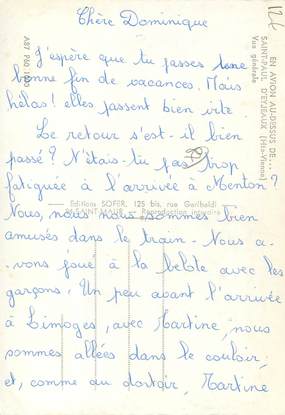 Chère Dominique
J'espère que tu passes une
bonne fin de vacances. Mais
hélas! elles passent bien vite
Le retour s'est-il bien
passé? N'étais-tu pas trop
fatiguée à l'arrivée à Menton?
Nous, nous nous sommes bien
amusés dans le train. Nous a-
vons joué à la belote avec les
garçons. Un peu avant l'arrivée
à Limoges, avec Martine, nous
sommes allées dans le couloir;
et, comme du dortoir, Martine
EN AVION AU-DESSUS DE...
SAINT-PAUL D'EYJEAUX (Hte-Vienne)
Vue générale
Editions SOFER, 125 bis, rue Garibaldi
SAINT-MAUR — Reproduction interdite